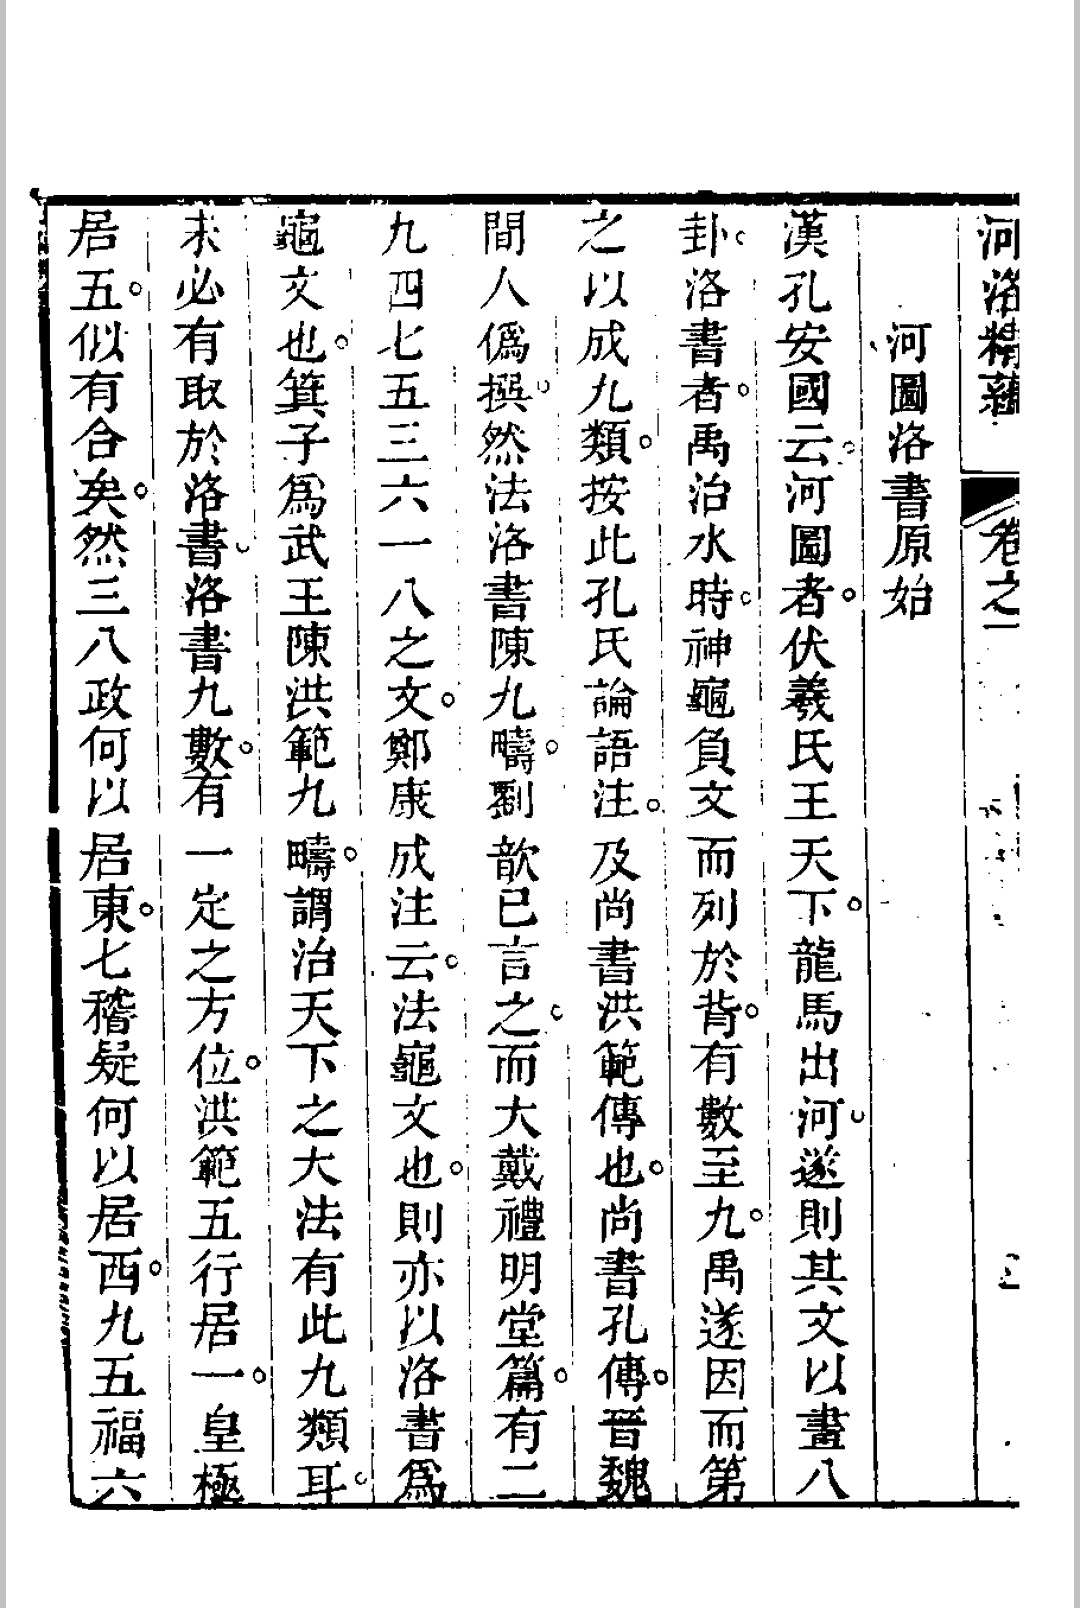 河洛精蘊 卷之一
河圖洛書原始
漢孔安國云。河圖者。伏羲氏王天下。龍馬出河。遂則其文以畫八
卦。洛書者。禹治水時。神龜負文而列於背。有數至九。禹遂因而第
之以成九類。按此孔氏論語注。及尚書洪範傳也。尚書孔傳。晉魏
間人僞撰。然法洛書陳九疇。劉歆已言之。而大戴禮明堂篇。有二
九四七五三六一八之文。鄭康成注云。法龜文也。則亦以洛書爲
龜文也。箕子爲武王陳洪範九疇。謂治天下之大法有此九類耳。
未必有取於洛書。洛書九數。有一定之方位。洪範五行居一。皇極
居五。似有合矣。然三八政何以居東。七稽疑何以居西。九五福六